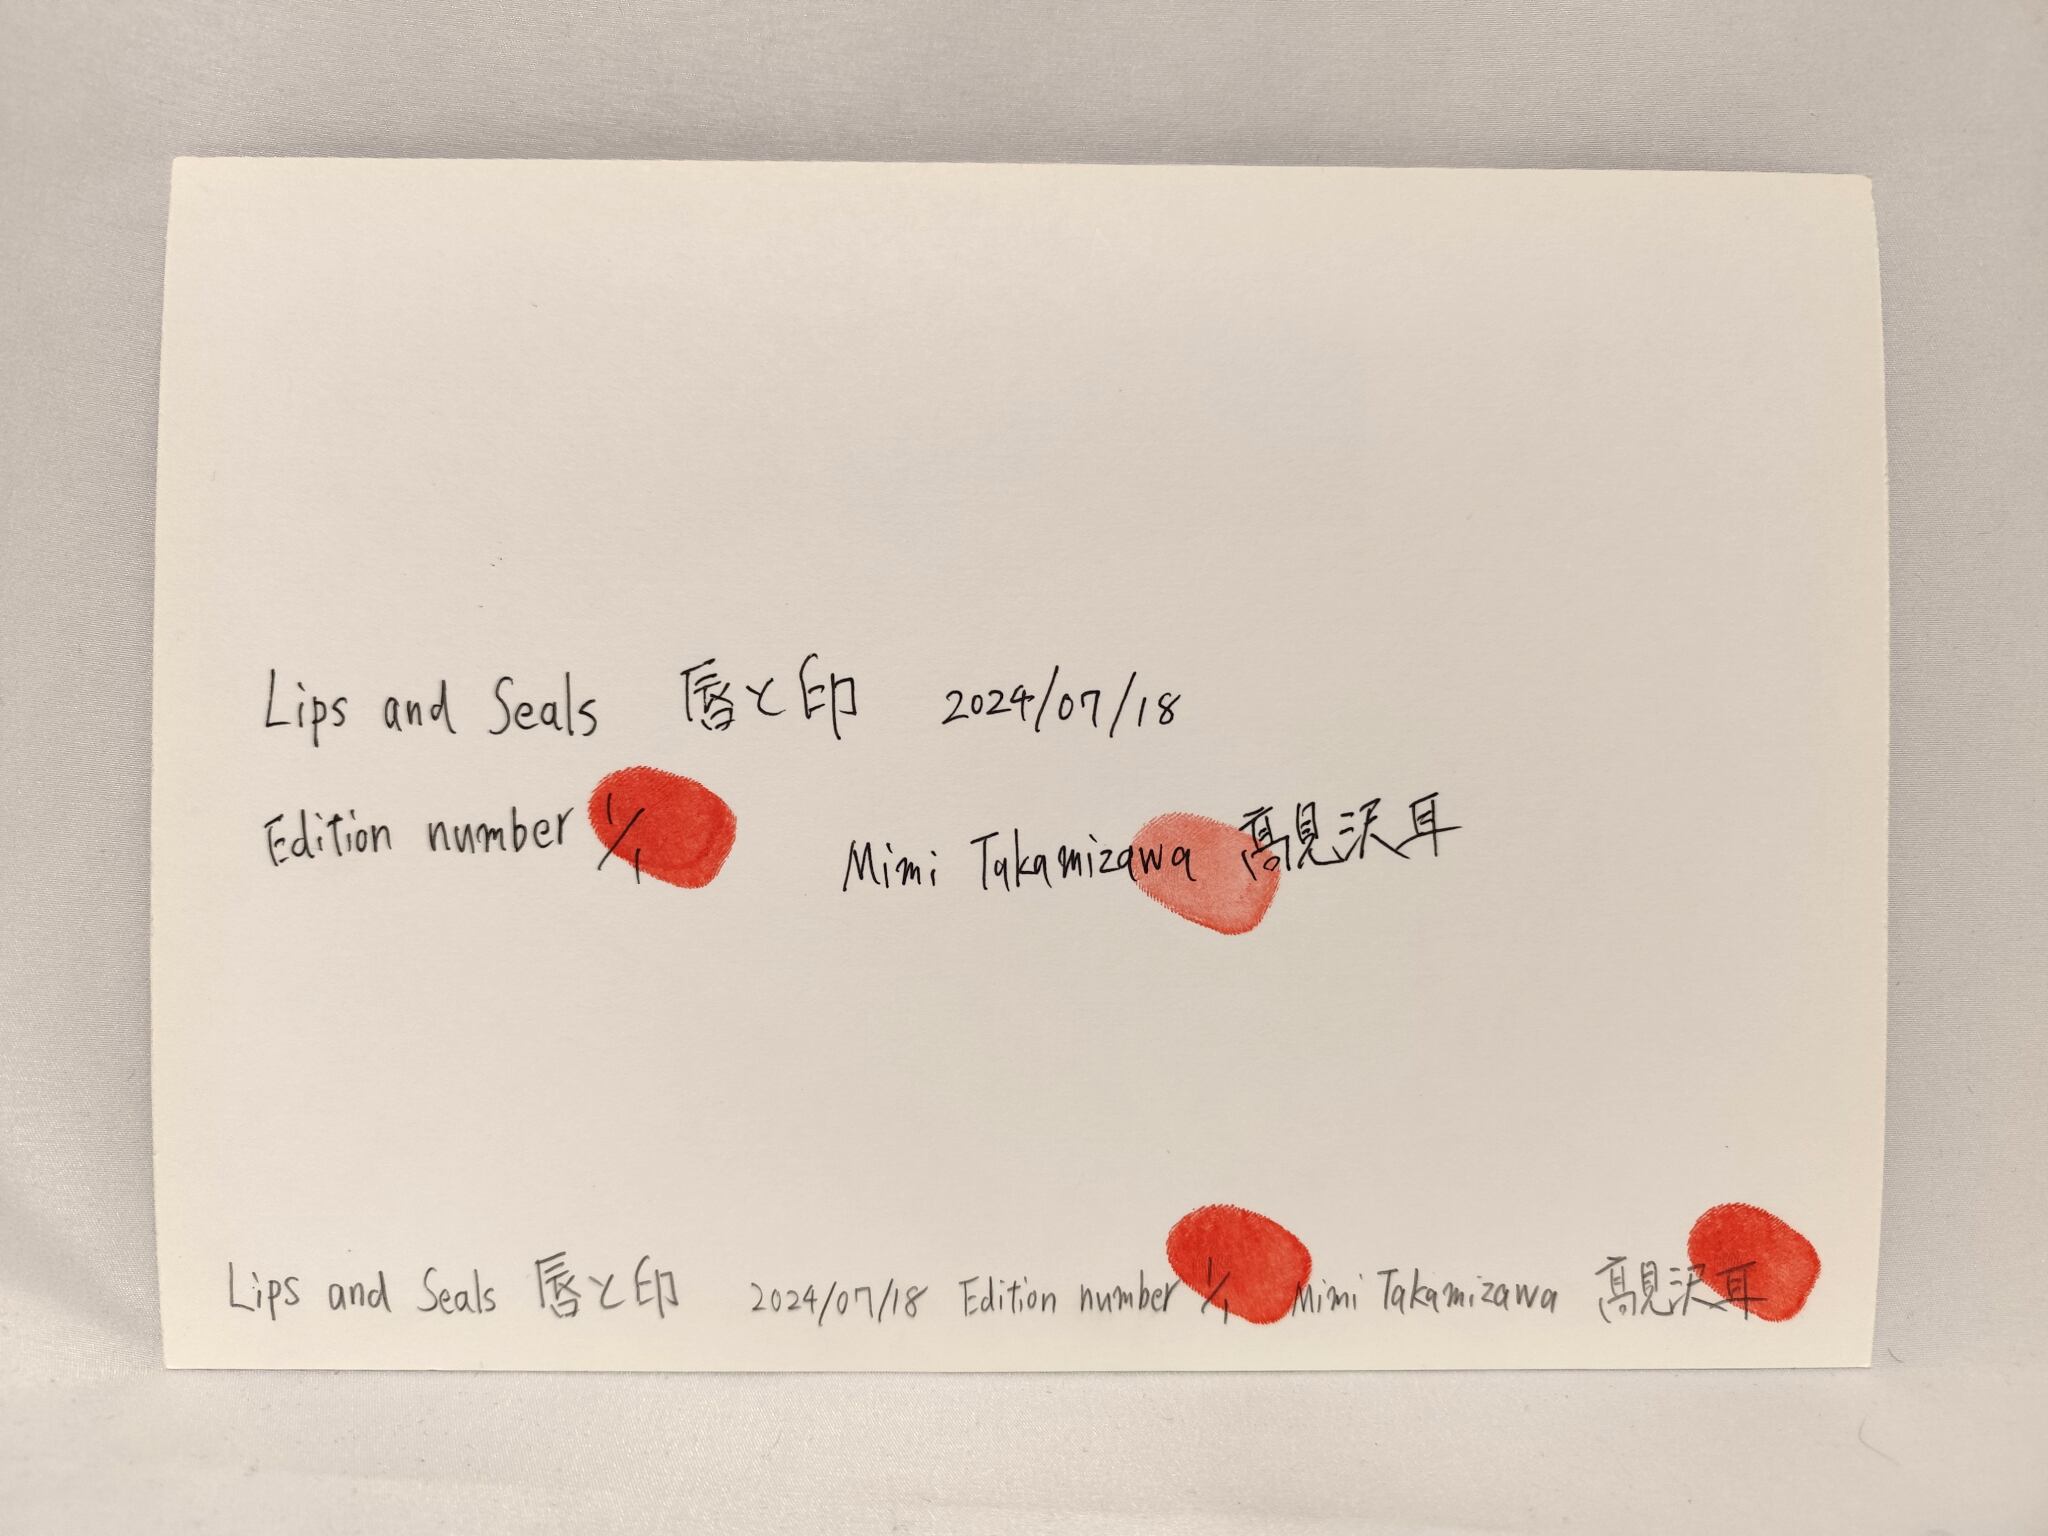 Lips and Seals 唇と印 2024/07/18
Edition number 1/1 Mimi Takamizawa 髙見沢耳
Lips and Seals 唇と印 2024/07/18 Edition number 1/1 Mimi Takamizawa 髙見沢耳